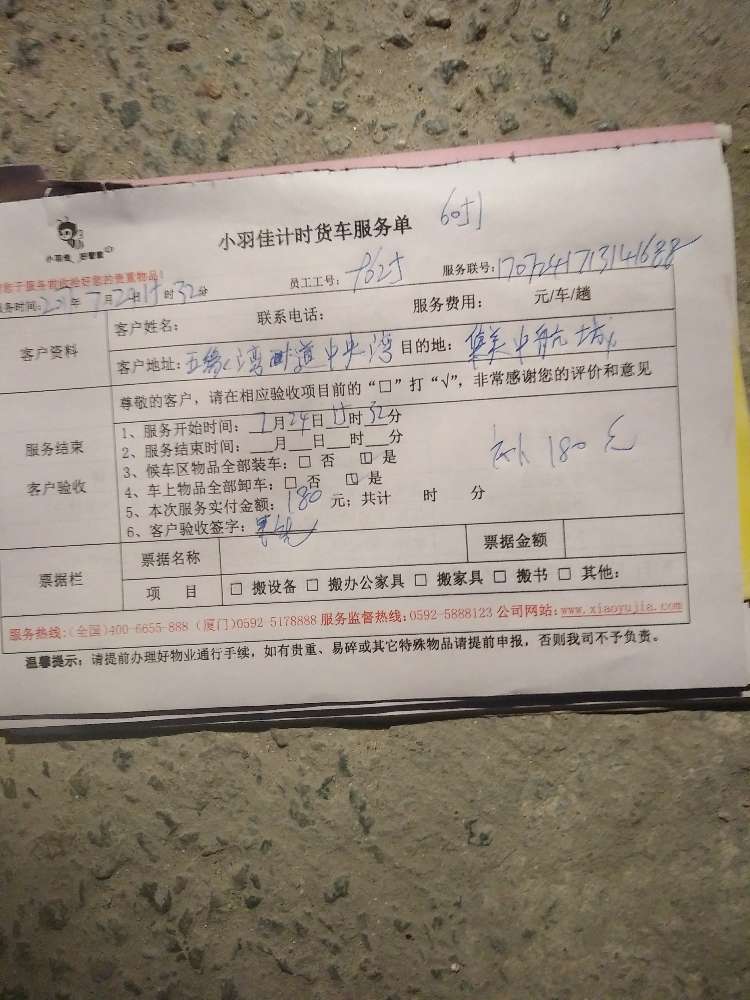 小羽佳计时货车服务单
小羽佳 好管家
服务前收验好您的贵重物品!
员工工号:
服务联号:
务时间: 年7月24日 时32分
客户资料
客户姓名: 联系电话: 服务费用: 元/车/趟
客户地址:五缘湾 道中央湾 目的地:集美中航城
服务结束
客户验收
尊敬的客户,请在相应验收项目前的“□”打“√”,非常感谢您的评价和意见
1、服务开始时间:7月24日 时32分
2、服务结束时间: 月 日 时 分
3、候车区物品全部装车:□ 否 □ 是
4、车上物品全部卸车:□ 否 □ 是
5、本次服务实付金额:180元;共计 时 分
6、客户验收签字:
180元
票据栏
票据名称 票据金额
项 目 □ 搬设备 □ 搬办公家具 □ 搬家具 □ 搬书 □ 其他:
服务热线:(全国)400-6655-888 (厦门)0592-5178888 服务监督热线:0592-5888123 公司网站:www.xiaoyujia.com
温馨提示:请提前办理好物业通行手续,如有贵重、易碎或其它特殊物品请提前申报,否则我司不予负责。